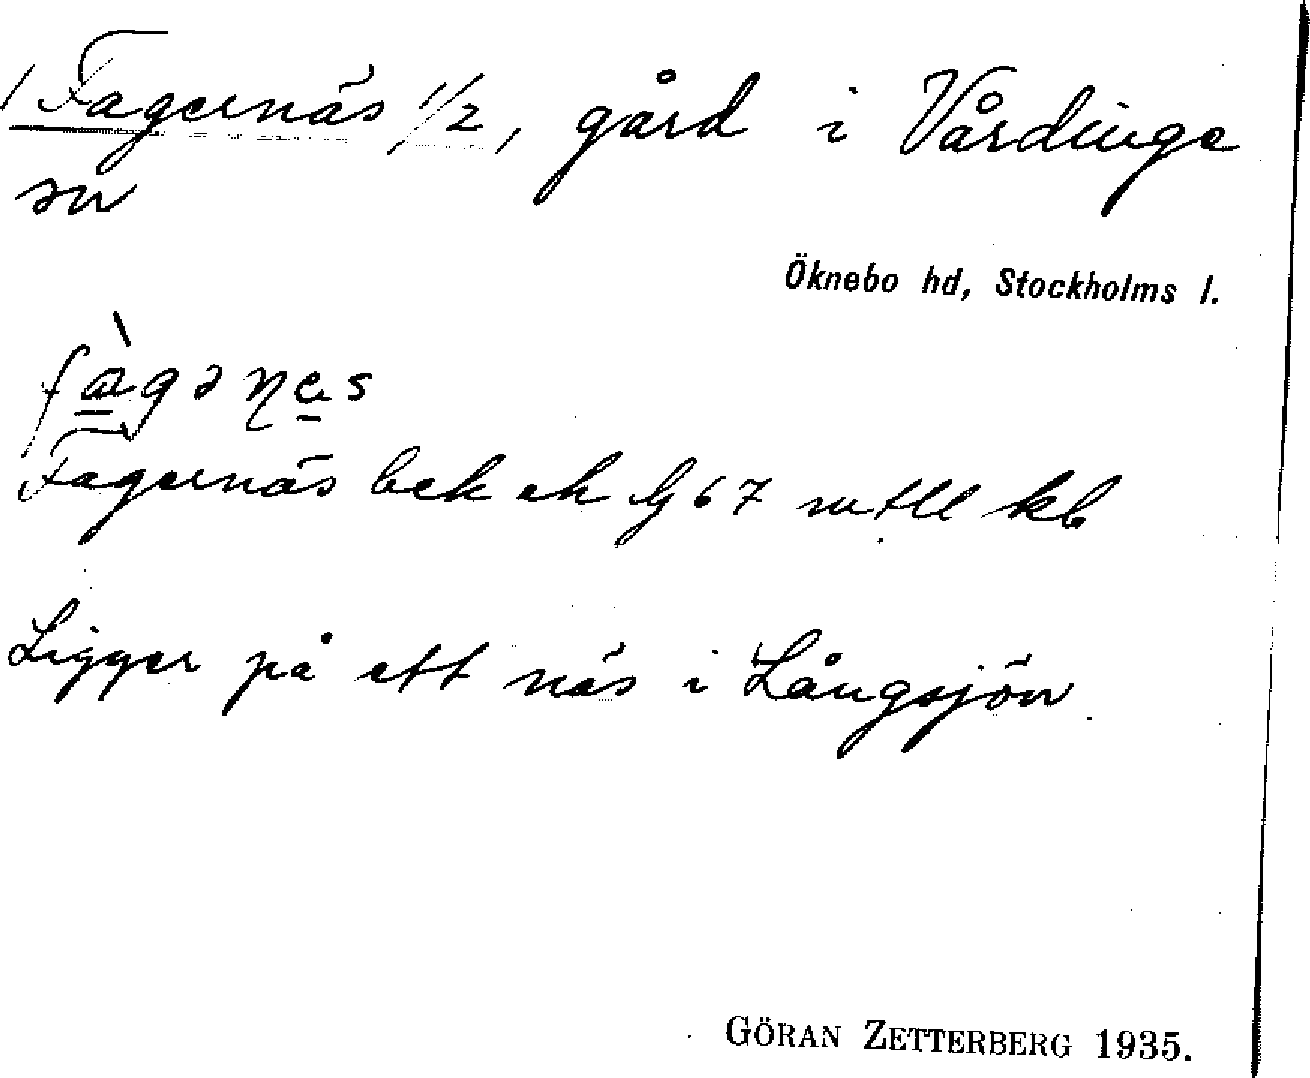 Fagernäs 1/2, gård i Vårdinge
sn
Öknebo hd, Stockholms l.
Fagernäs bek ek bl 67 kb
Ligger på ett näs i Långsjön
GÖRAN ZETTERBERG 1935.